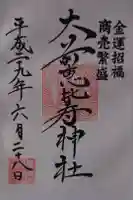 金運招福
商売繁盛
大前恵比寿神社
平成二九年六月二八日